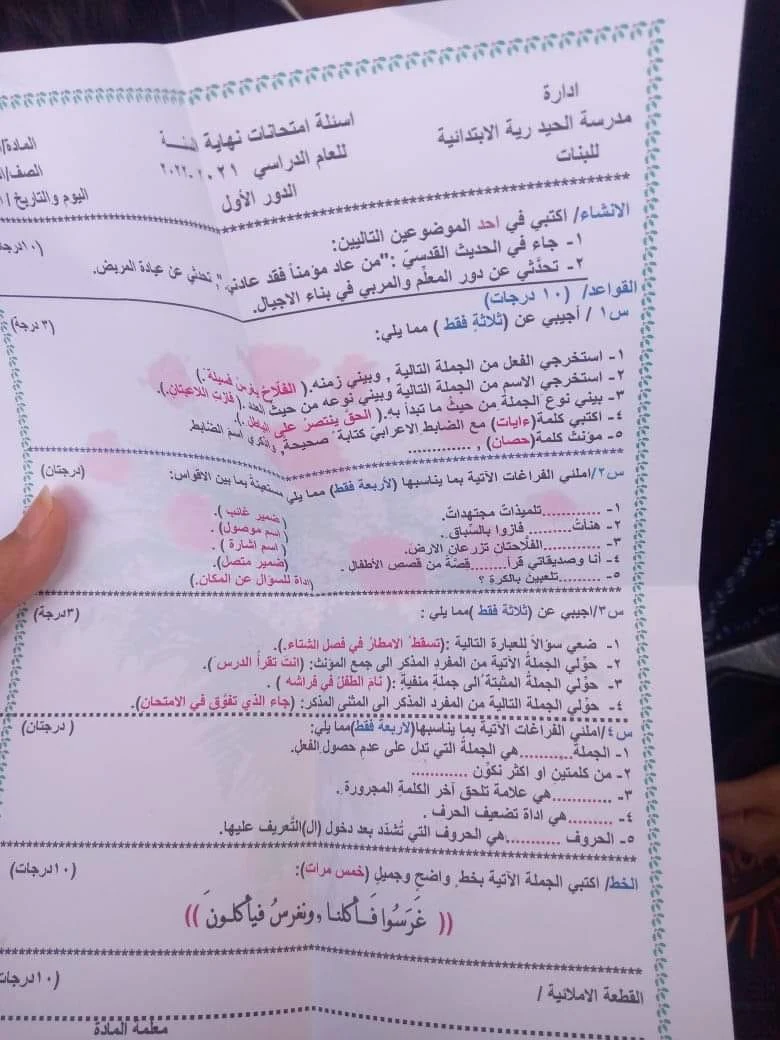 ادارة
مدرسة الحيدرية الابتدائية
للبنات
اسئلة امتحانات نهاية السنة
للعام الدراسي ٢٠٢١-٢٠٢٢
الدور الأول
المادة/
الصف/
اليوم والتاريخ /
الانشاء/ اكتبي في احد الموضوعين التاليين:
(١٠درجة
١- جاء في الحديث القدسيّ :"من عاد مؤمناً فقد عادني", تحدّثي عن عيادة المريض.
٢- تحدَّثي عن دور المعلّم والمربي في بناء الاجيال.
القواعد/ (١٠ درجات)
س١ / أجيبي عن (ثلاثةِ فقط ) مما يلي:
(٣ درجة)
١- استخرجي الفعل من الجملة التالية , وبيني زمنه.( الفلّاحُ يغرسُ فسيلة.)
٢- استخرجي الاسم من الجملة التالية وبيني نوعه من حيث العدد.( فازت اللاعبتان.).
٣- بيني نوع الجملة من حيثُ ما تبدأ به.( الحقّ ينتصرُ على الباطل.).
٤- اكتبي كلمة(ءايات) مع الضابط الاعرابيّ كتابة صحيحة, واذكري اسم الضابط
٥- مؤنث كلمة(حصان) , .............
س٢/املئي الفراغات الآتية بما يناسبها (لأربعة فقط) مما يلي مستعينةً بما بين الاقواس:
(درجتان)
١- ............تلميذاتٌ مجتهداتٌ. (ضمير غائب ).
٢- هنأتُ......... فازوا بالسّباق. (اسم موصول) .
٣- ............الفلّاحتان تزرعان الارض. ( اسم اشارة ) .
٤- أنا وصديقاتي قرأ........قصّةً من قصص الأطفال . (ضمير متصل).
٥- .........تلعبين بالكرة ؟ (اداة للسؤال عن المكان.)
س٣/اجيبي عن (ثلاثة فقط )مما يلي :
(٣درجة)
١- ضعي سؤالاً للعبارة التالية :(تسقطُ الامطارُ في فصل الشتاء.).
٢- حوّلي الجملة الآتية من المفرد المذكر الى جمع المؤنث: (انتَ تقرأُ الدرسَ ).
٣- حوّلي الجملة المثبتة الى جملةٍ منفيةٍ :( نامَ الطفلُ في فراشه ) .
٤- حوّلي الجملة التالية من المفرد المذكر الى المثنى المذكر: (جاء الذي تفوّق في الامتحان).
س٤/املئي الفراغات الآتية بما يناسبها(لاربعة فقط)مما يلي:
( درجتان)
١- الجملةُ..........هي الجملةُ التي تدل على عدم حصول الفعل.
٢- من كلمتين او اكثر نكوّن ............
٣- ............هي علامة تلحق آخر الكلمة المجرورة .
٤- .........هي اداة تضعيف الحرف .
٥- الحروف ...........هي الحروف التي تُشدّد بعد دخول (ال)التّعريف عليها.
الخط/ اكتبي الجملة الآتية بخطٍ واضحٍ وجميلٍ (خمس مرات):
(١٠درجات)
(( غَرَسُوا فَأكلنا , ونغرسُ فيأكلونَ ))
القطعة الاملائية /
(١٠درجات
معلمة المادة